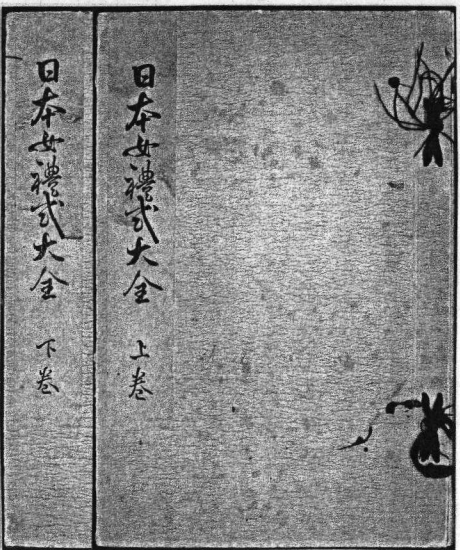 日本女禮式大全 上卷
日本女禮式大全 下卷